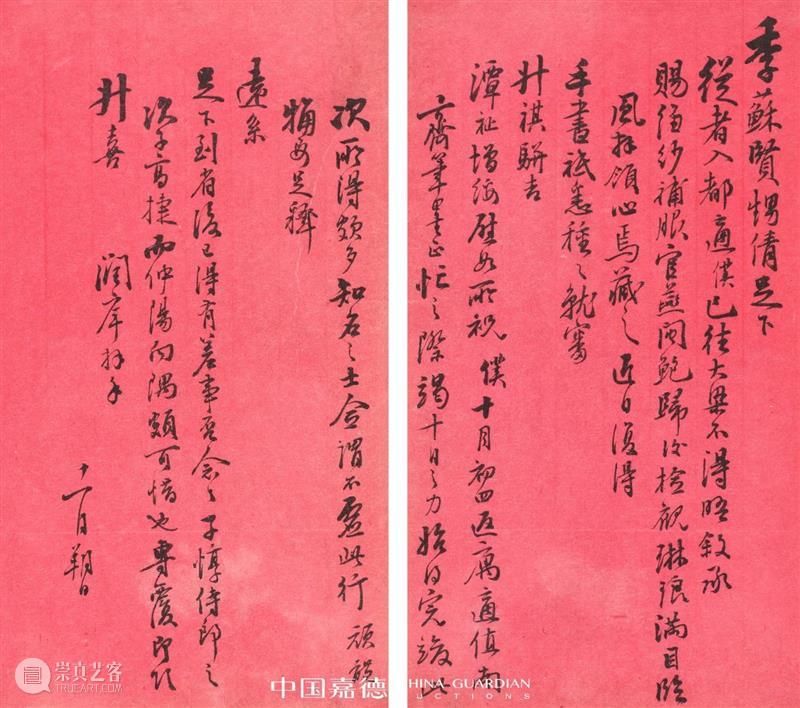 季蘇賢甥倩足下
從者入都適僕已往大梁不得晤敘承
賜絕紗補服官燕閩鮑歸後檢視琳琅滿目臨
風拜領心焉藏之近日復得
手書祗悉種種就審
升祺駢吉
潭祉增綏慰如所祝僕十月初四返寓適值南
齋筆墨正忙之際竭十日之力始得完竣此
次所得頗多知名之士合謂不虛此行頑軀
犕如足釋
遠系
足下到省後已得有差事否念念子惇侍郎之
次子高捷而仲陽向隅頗可惜也專覆即頌
升喜
潤庠拜手
十一月朔日
中国嘉德
CHINA GUARDIAN
AUCTIONS
崇真艺客
TRUEART.COM